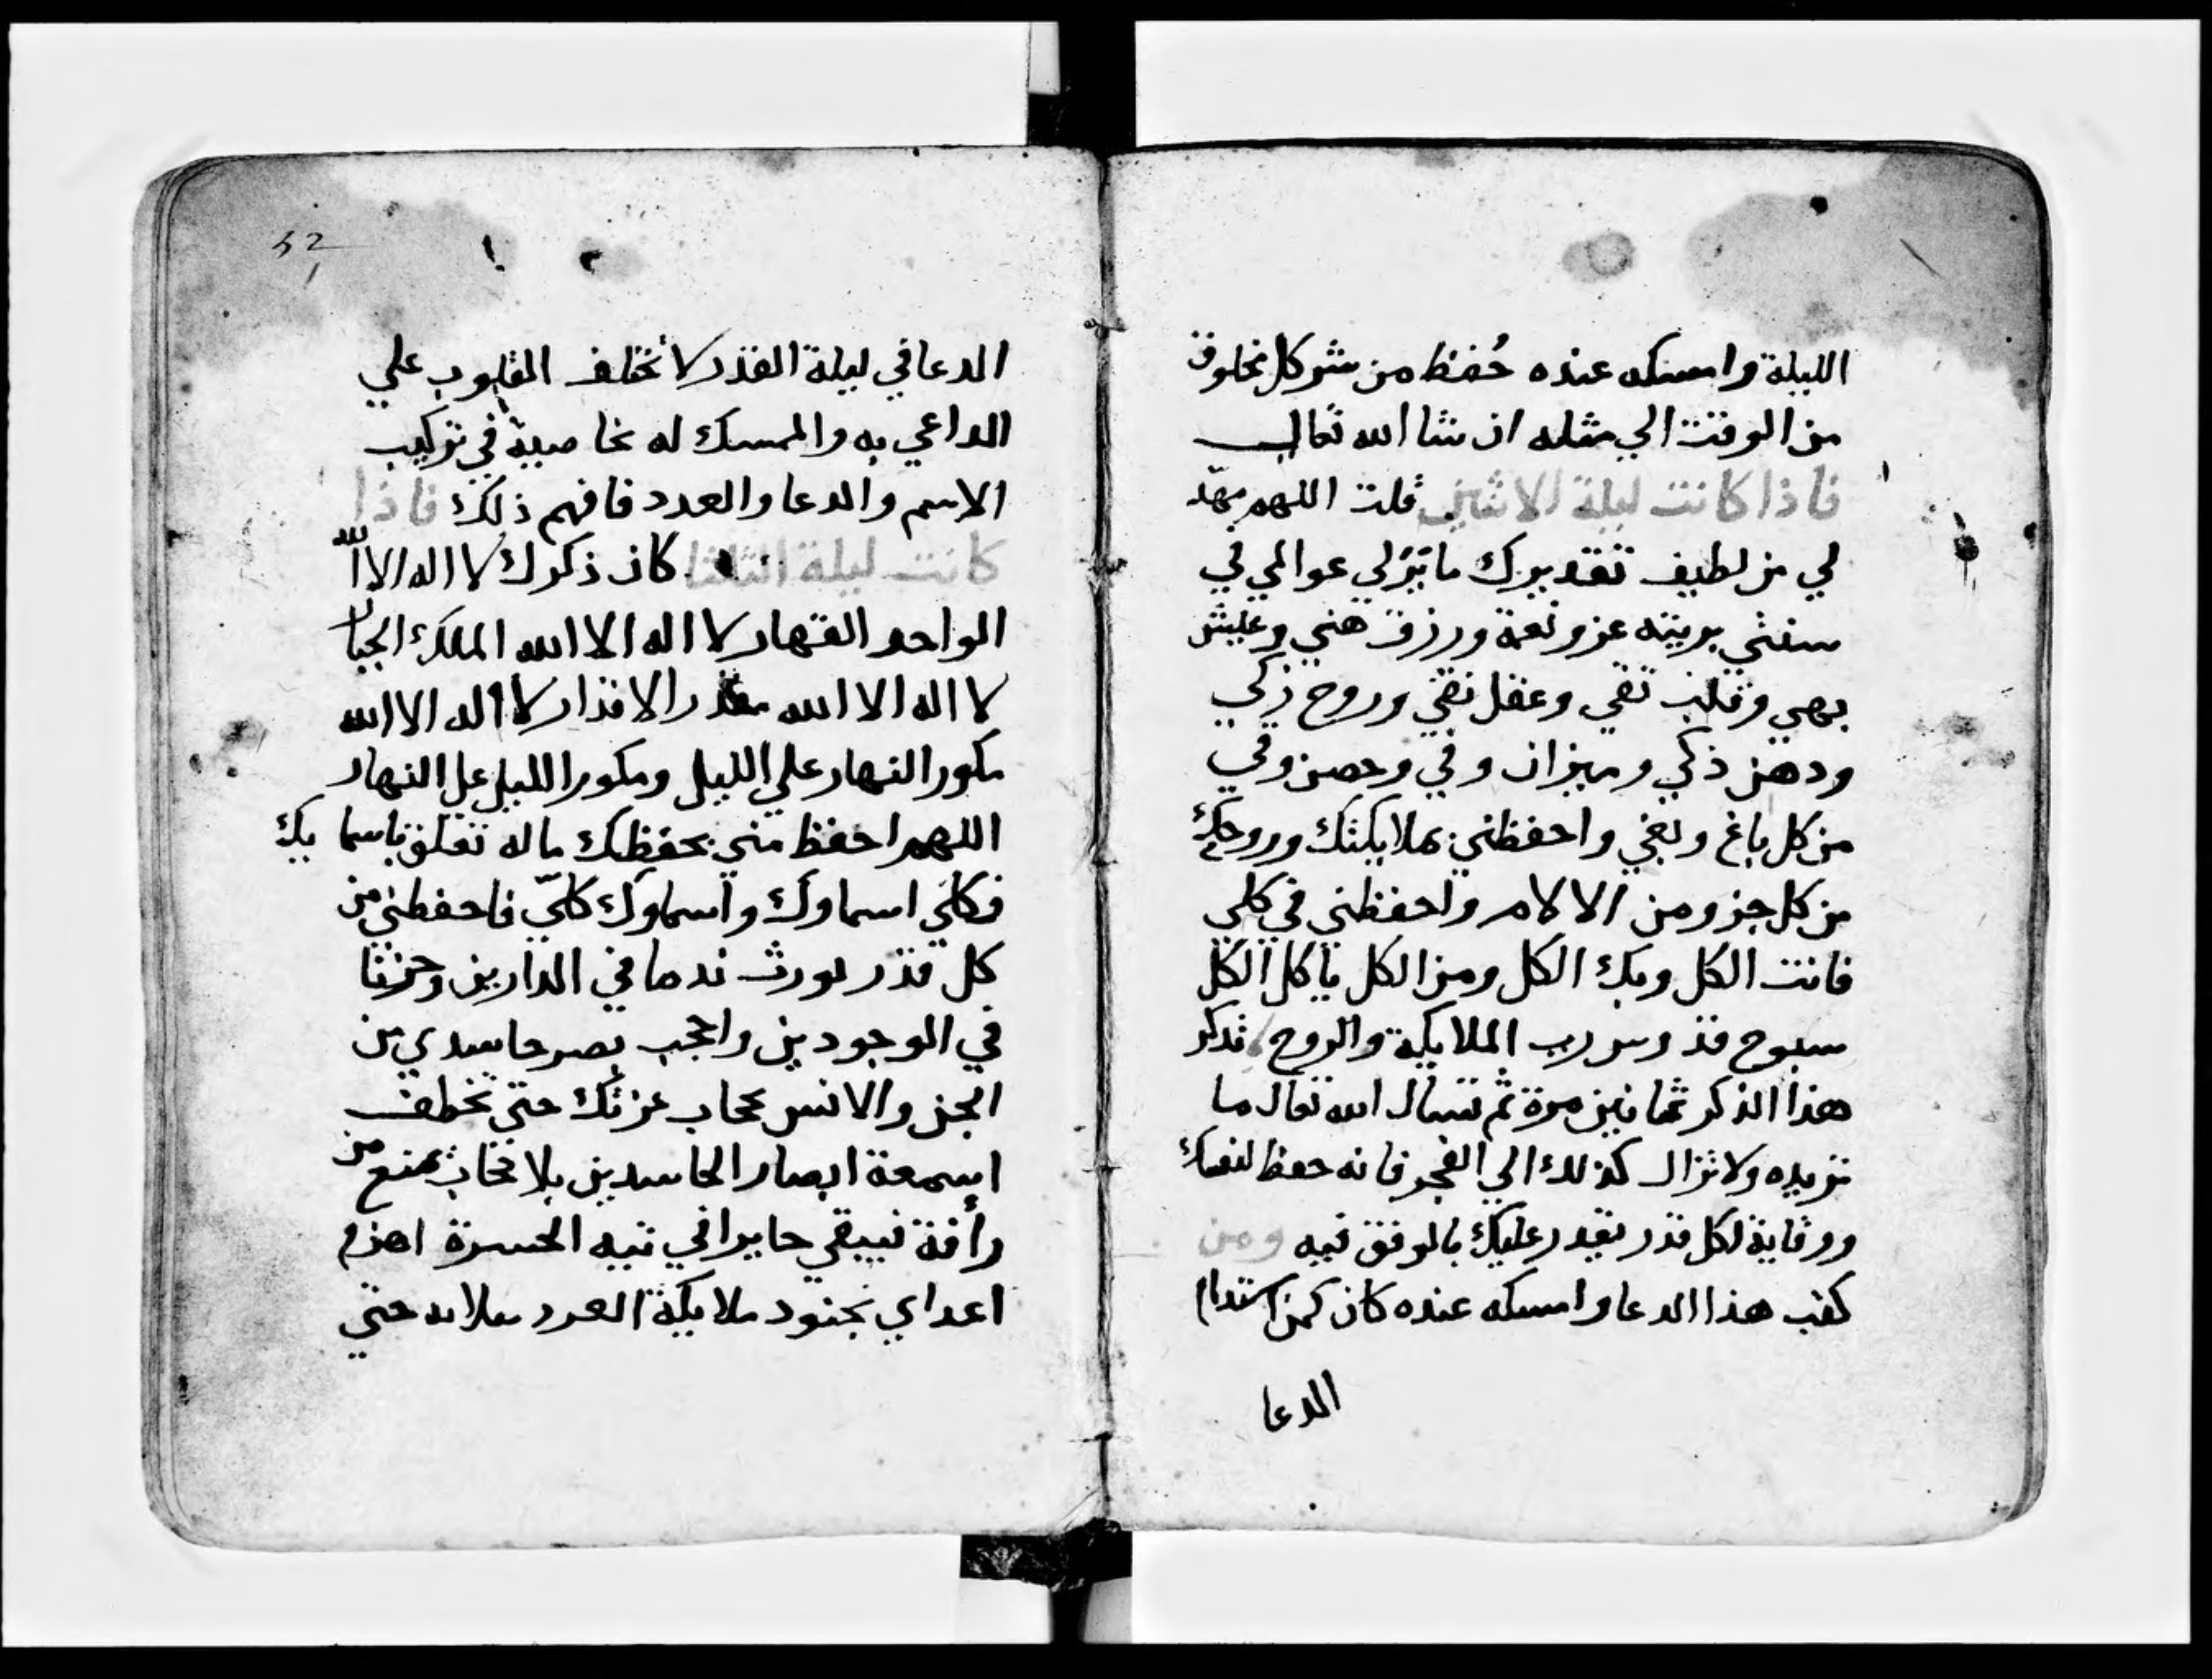 الليلة وامسكه عنده حُفظ من شر كل مخلوق
من الوقت الي مثله ان شا الله تعالي
فاذا كانت ليلة الاثنين قلت اللهم مهّد
لي من لطيف تقديرك عوالمي في
بريته عز ونعمة ورزق هني وعيش
بهي وقلب تقي وعقل نقي وروح زكي
ودهن ذكي وميزان وفي وحصن وفي
من كل باغ وبغي واحفظني بملايكتك وروحك
من كل جز ومن الالام واحفظني في كلي
فانت الكل وبك الكل ومن الكل يا كل الكل
سبوح قدوس رب الملايكة والروح تذكر
هذا الذكر ثمانين مرة ثم تسال الله تعال ما
تريده ولا تزال كذلك الي الفجر فانه حفظ لنفسك
ووقاية لكل قدر يقدر عليك بالوفق فيه ومن
كتب هذا الدعا وامسكه عنده كان كمن استدام
الدعا
52
الدعا في ليلة القدر لا تختلف القلوب علي
الداعي به والممسك له خاصية في تركيب
الاسم والدعا والعدد فافهم ذلك فاذا
كانت ليلة الثلثا كان ذكرك لا اله الا الله
الواحد القهار لا اله الا الله الملك الجبار
لا اله الا الله مقدر الاقدار لا اله الا الله
مكور النهار علي الليل ومكور الليل عل النهار
اللهم احفظ مني بحفظك ما له تعلق باسمايك
فكلي اسماوك واسماوك كلي فاحفظني من
كل قدر يورث ندما في الدارين وحزنا
في الموجودين واحجب بصر حاسدي من
الجن والانس بحجاب عزتك حتي تخطف
اسمعة ابصار الحاسدين بلا حجاب يمنع من
رأفة فيبقي حايرا في تيه الحسرة اهزم
اعداي بجنود ملايكة حتي